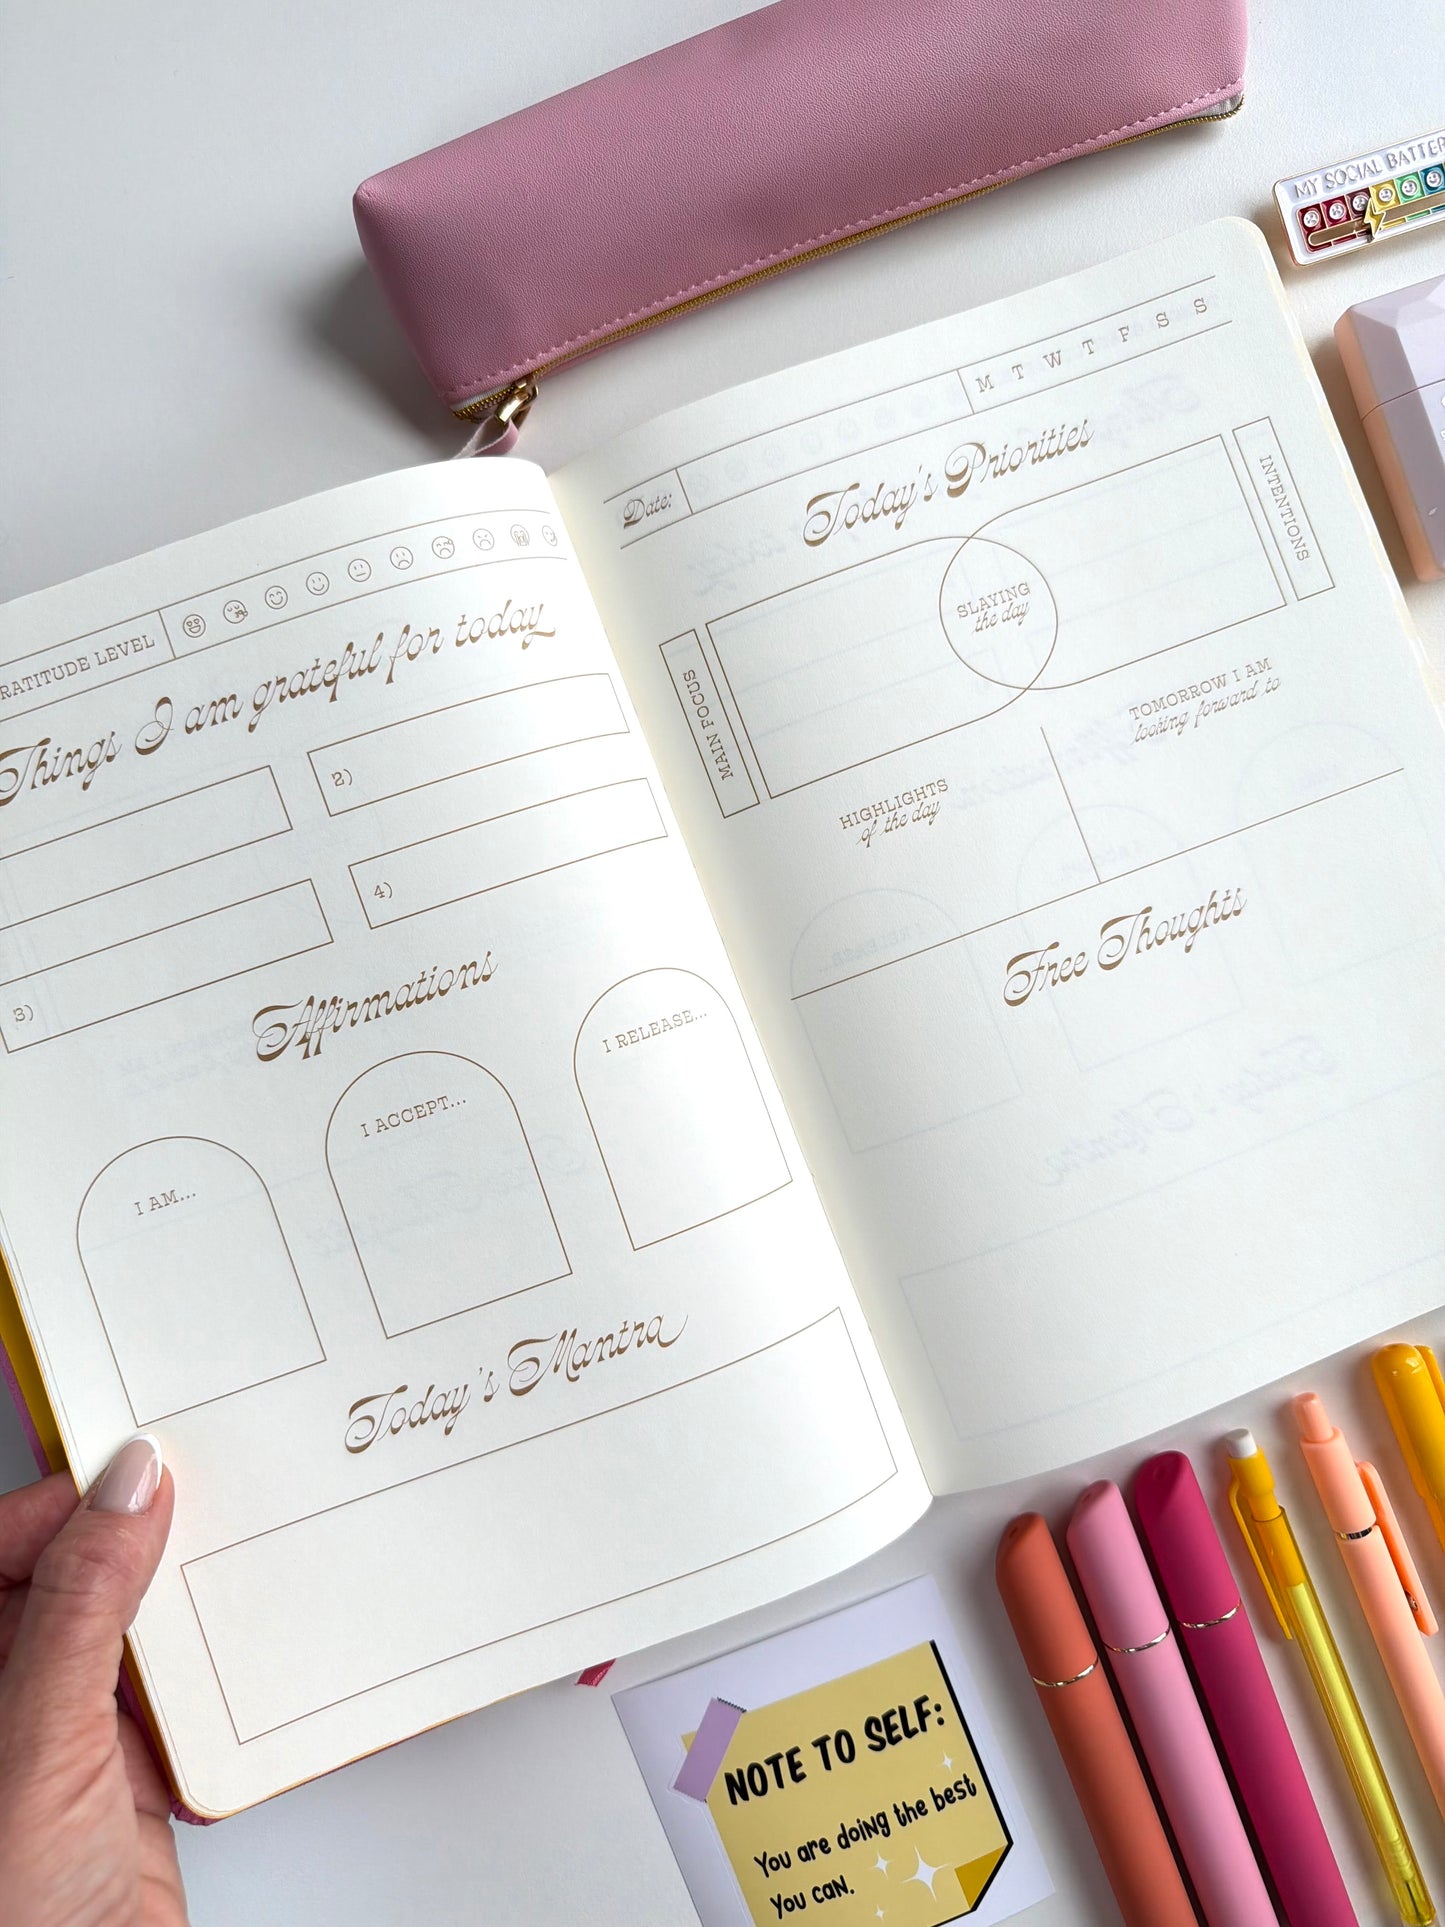 MY SOCIAL BATTER
Date:
M T W T F S S
Today's Priorities
MAIN FOCUS
SLAYING
the day
INTENTIONS
HIGHLIGHTS
of the day
TOMORROW I AM
looking forward to
Free Thoughts
RATITUDE LEVEL
Things I am grateful for today
2)
3)
4)
Affirmations
I AM...
I ACCEPT...
I RELEASE...
Today's Mantra
NOTE TO SELF:
You are doing the best
you can.